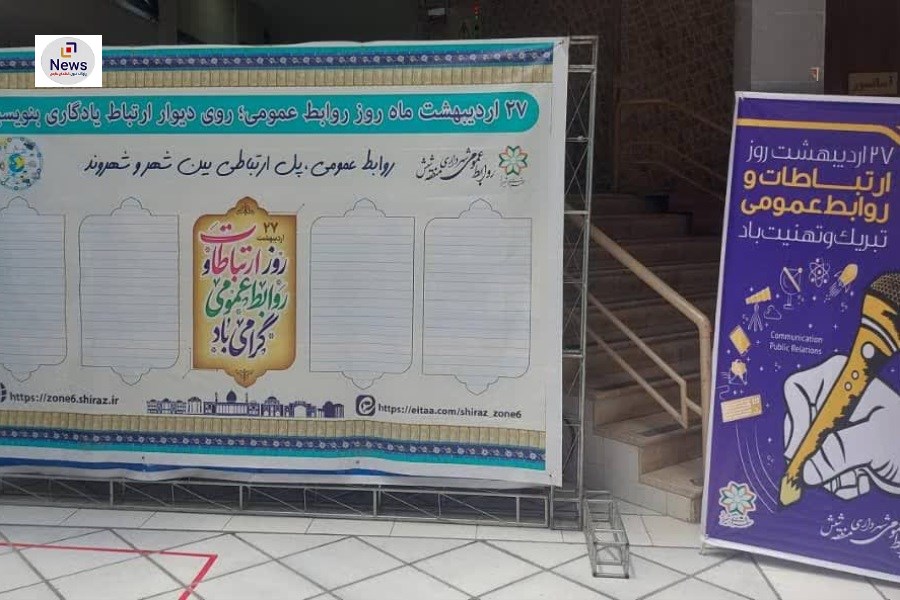 News
۲۷ اردیبهشت ماه روز روابط عمومی؛ روی دیوار ارتباط یادگاری بنویسی
روابط عمومی، پل ارتباطی بین شهر و شهروند
روابط عمومی شهرداری منطقه شیش
۲۷
اردیبهشت
روز ارتباطات و
روابط عمومی
گرامی باد
https://zone6.shiraz.ir
https://eitaa.com/shiraz_zone6
۲۷ اردیبهشت روز
ارتباطات و
روابط عمومی
تبریک و تهنیت باد
Communication
Public Relations
شهرداری منطقه شیش